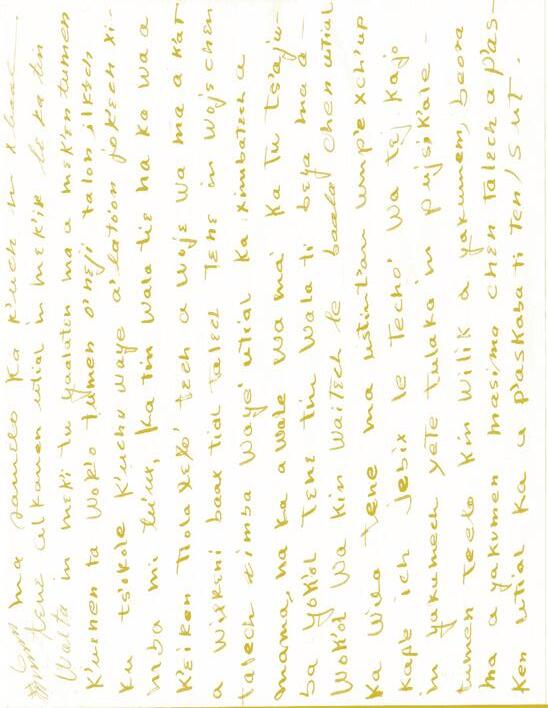 ma samilo ka k'uch in xbaal
tene ulkanen utial in mek'ik le ka tin
Walta in mek'i tu yaalaten ma a mek'en tumen
k'uxinen ta wok'o tumen o'neji talon ilkech
ku ts'okole k'uchu waye a'latoon jok'ech xi-
mba mi tu'ux, ka tin wala tie na ka wa a
k'eiken Tiola xexo' tech a woje wa ma a k'at
a wilkeni baax tial talech Tene in wojechen
talech ximba waye' utial ka ximbatech a
mama, na ka a wale wa ma' ka tu ts'aju-
ba yok'ol tene tin wala ti beya ma a-
wok'ol wa kin waitech le baala chen utial
ka wila tene ma ustint'an ump'e xch'up
kape ich jebix le techo' wa tej kajo
in yakumech yete tulaka in pujsik'ale-
tumen teelo kin wilik a yakumen, beora
ma a yakumen masima chen talech a p'as-
ken utial ka u p'askaba ti ten, s ut.